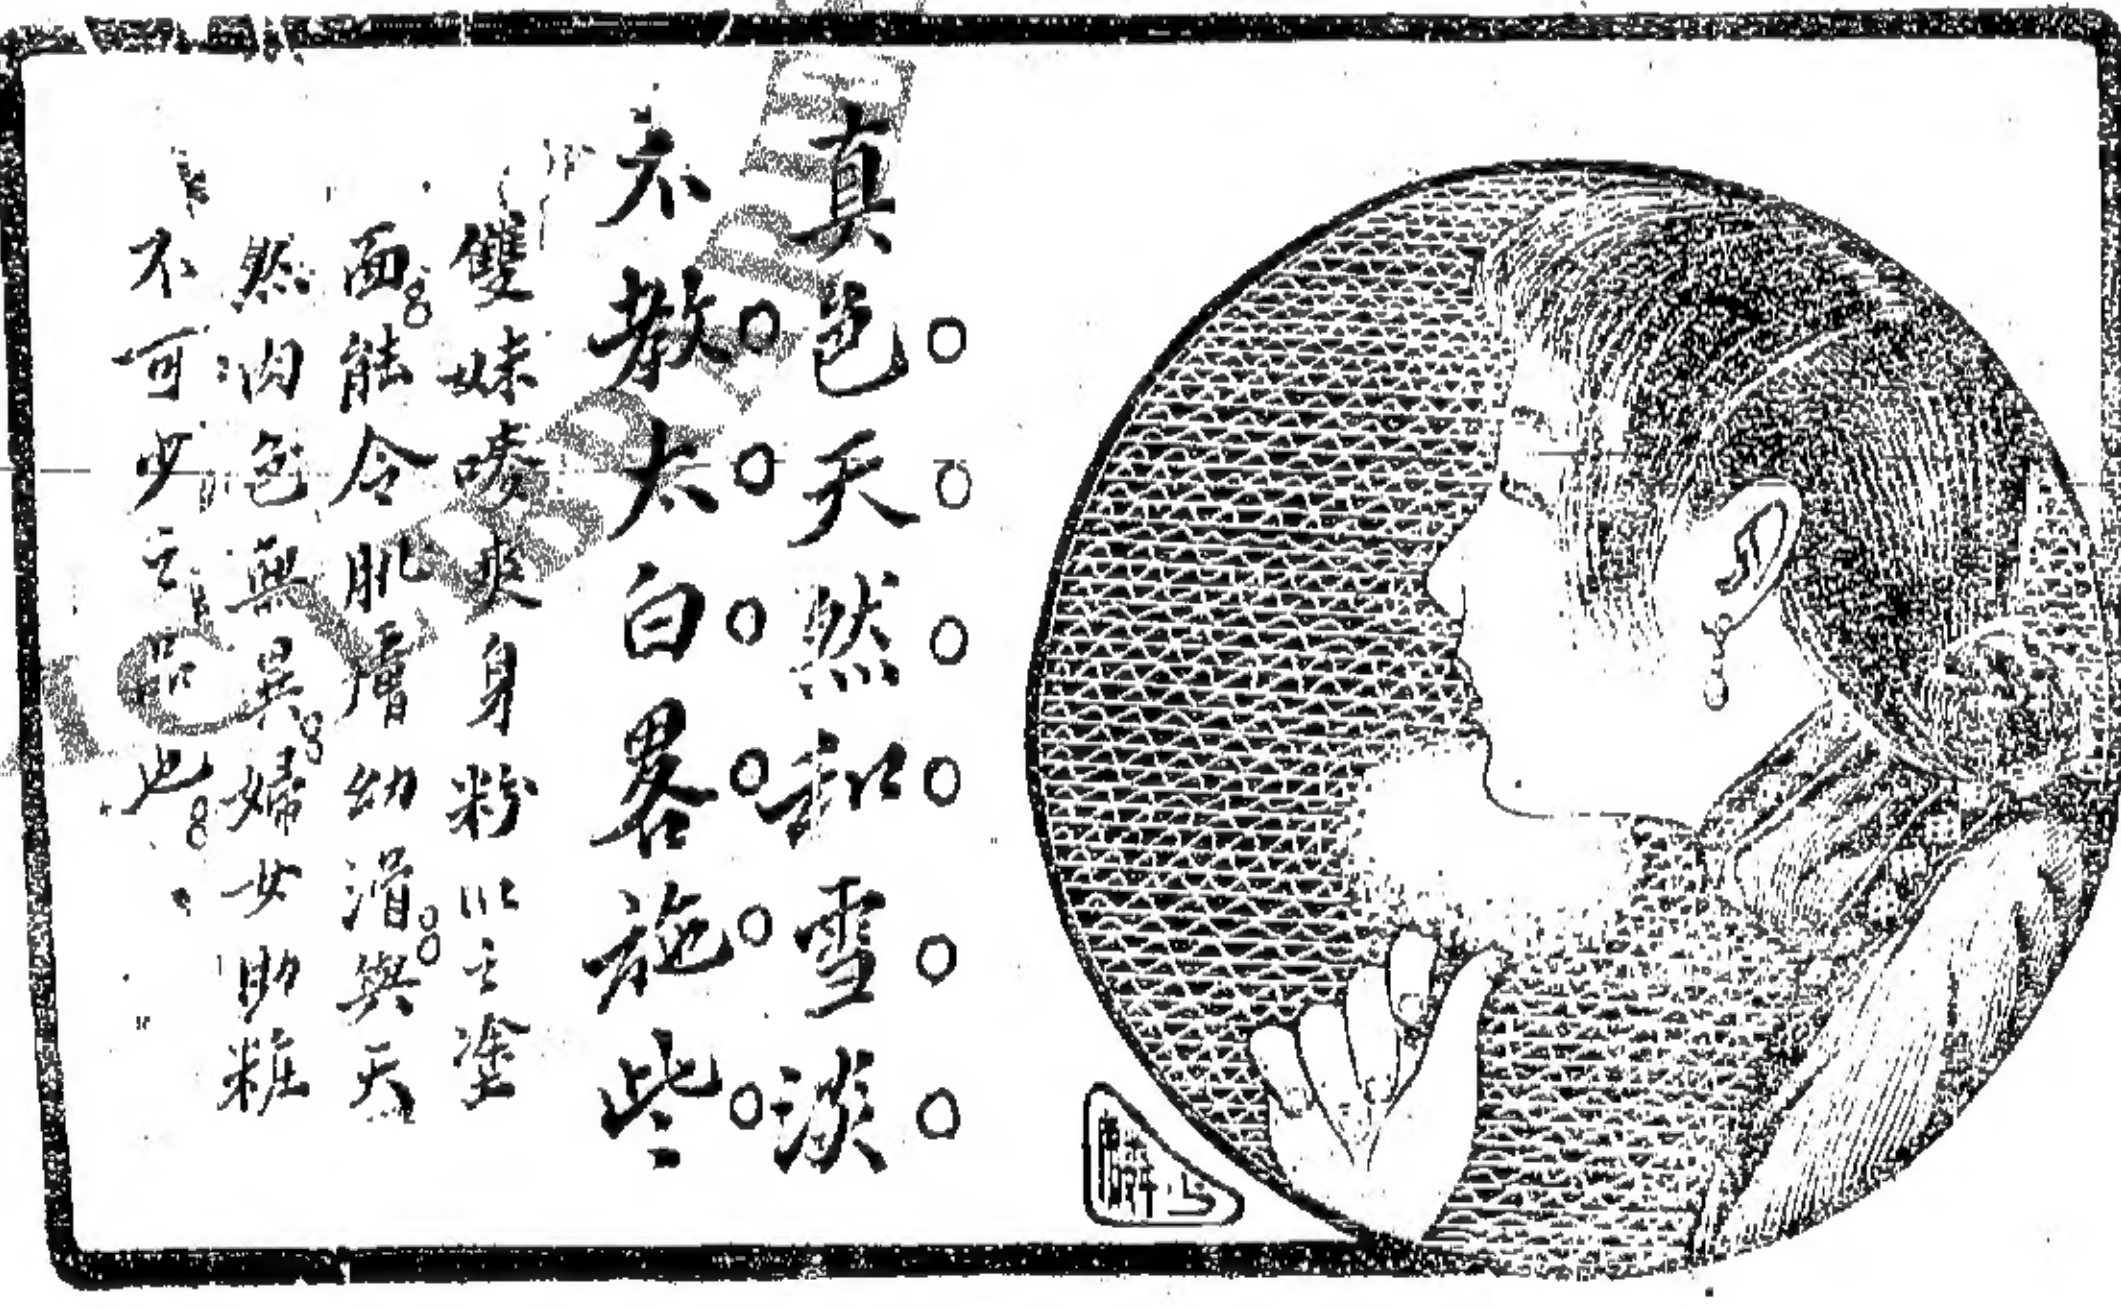 真色天然和雪淡
不教太白畧施些
雙妹嘜爽身粉以之塗
面能令肌膚幼滑與天
然肉色無異婦女助粧
不可少之品也